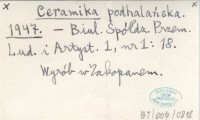 Ceramika podhalańska.
1947. - Biul. Spółdz. Przem.
Lud. i Artyst. 1, nr 1: 18.
Wyrób w Zakopanem.
BT/004/0818